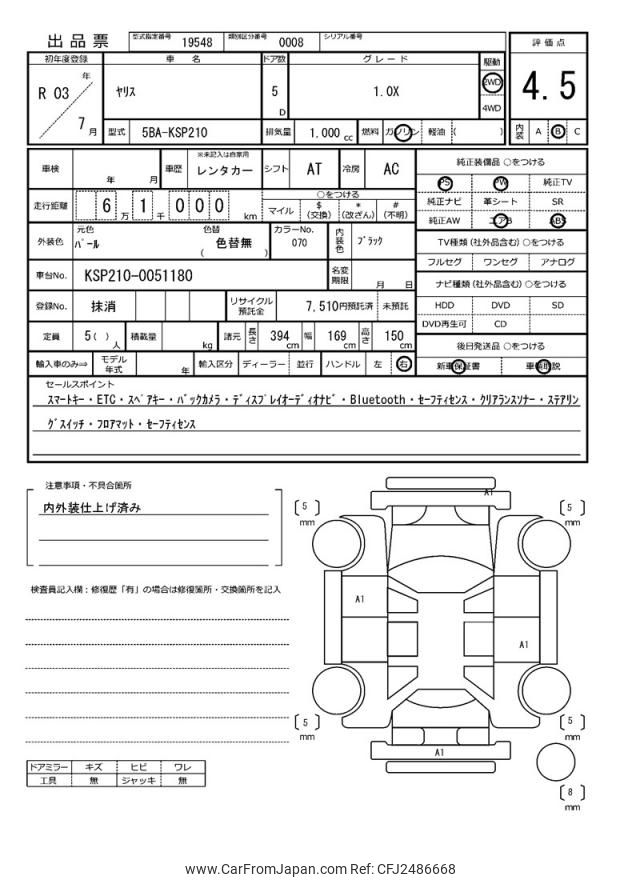 出品票 型式指定番号 19548 類別区分番号 0008 シリアル番号
評価点
4.5
初年度登録 車名 ドア数 グレード 駆動
R 03 年 7 月 ヤリス 5 D 1.0X 2WD 4WD
型式 5BA-KSP210 排気量 1.000 cc 燃料 ガソリン 軽油 ( ) 内装 A B C
車検 年 月 車歴 ※未記入は自家用 レンタカー シフト AT 冷房 AC
走行距離 6万 1千 0 0 0 km ○をつける
マイル $(交換) *(改ざん) #(不明)
外装色 元色 パール 色替 ( 色替無 ) カラーNo. 070 内装色 ブラック
車台No. KSP210-0051180 名変期限 月 日
登録No. 抹消 リサイクル預託金 7,510円預託済 未預託
定員 5( ) 人 積載量 kg 諸元 長さ 394 cm 幅 169 cm 高さ 150 cm
輸入車のみ⇒ モデル年式 年 輸入区分 ディーラー 並行 ハンドル 左 右
純正装備品 ○をつける
PS PW 純正TV
純正ナビ 革シート SR
純正AW エアB ABS
TV種類(社外品含む)○をつける
フルセグ ワンセグ アナログ
ナビ種類(社外品含む)○をつける
HDD DVD SD
DVD再生可 CD
後日発送品 ○をつける
新車保証書 車輌取説
セールスポイント
スマートキー・ETC・スペアキー・バックカメラ・ディスプレイオーディオナビ・Bluetooth・セーフティセンス・クリアランスソナー・ステアリン
グスイッチ・フロアマット・セーフティセンス
注意事項・不具合箇所
内外装仕上げ済み
検査員記入欄：修復歴「有」の場合は修復箇所・交換箇所を記入
ドアミラー キズ ヒビ ワレ
工具 無 ジャッキ 無
A1
[ 5 ] mm
[ 5 ] mm
A1
A1
[ 5 ] mm
[ 5 ] mm
A1
[ 8 ] mm
www.CarFromJapan.com Ref: CFJ2486668